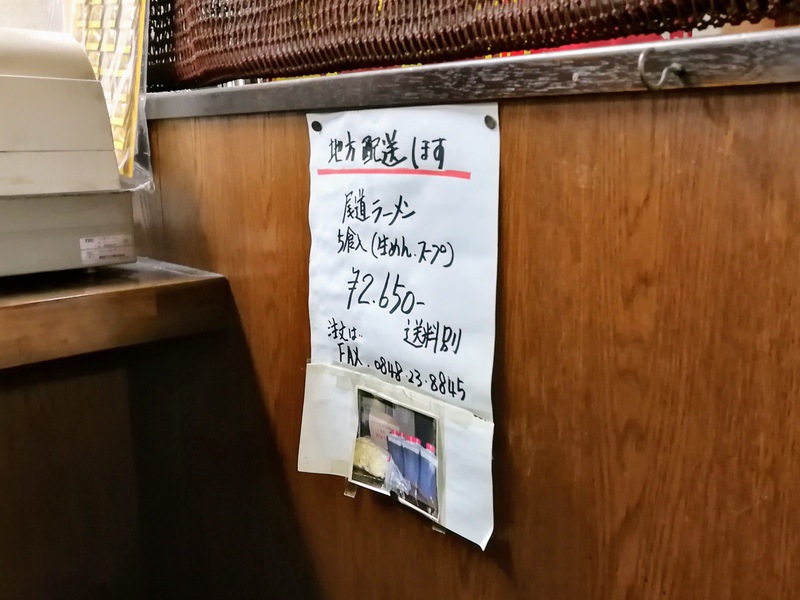 地方配送します
尾道ラーメン
5食入(生めん.スープ)
¥2.650-
送料別
注文は..
FAX. 0848.23.8845